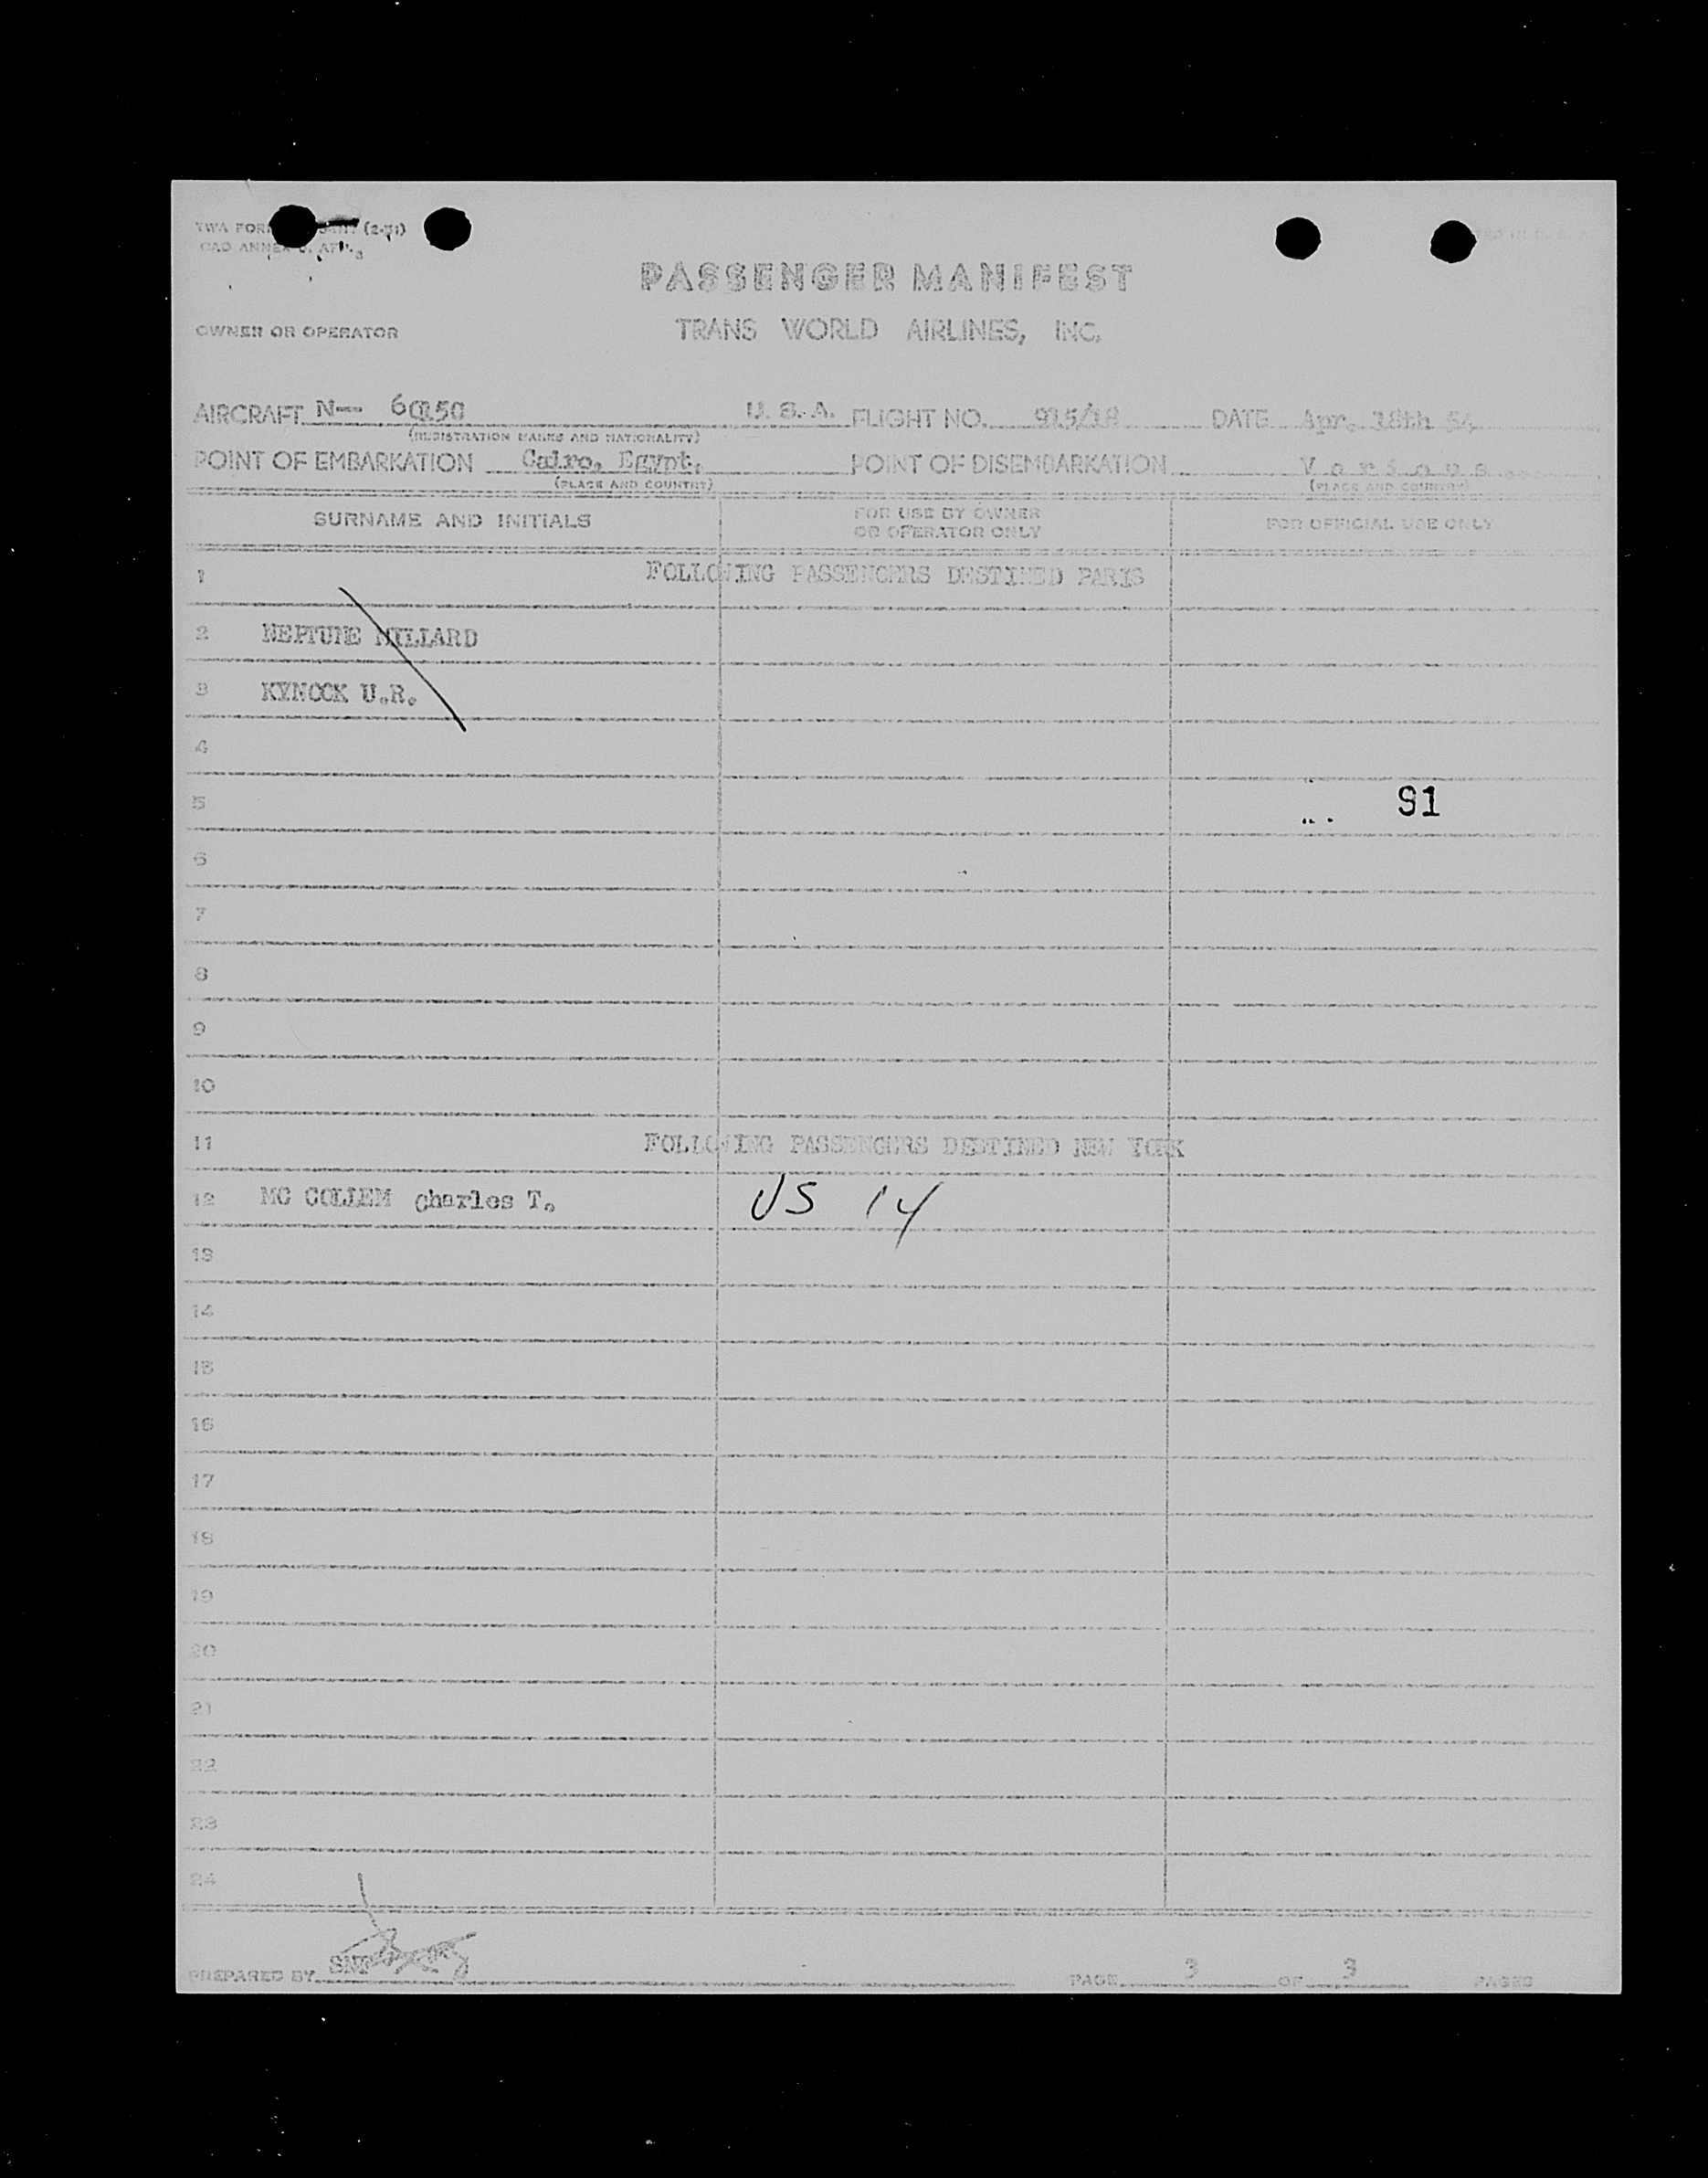 TWA FORM (2-51)
PASSENGER MANIFEST
OWNER OR OPERATOR TRANS WORLD AIRLINES, INC.
AIRCRAFT N-- U. S. A. FLIGHT NO. 915/18 DATE Apr. 18th 54
(REGISTRATION MARKS AND NATIONALITY)
POINT OF EMBARKATION Cairo, Egypt. POINT OF DISEMBARKATION Various
(PLACE AND COUNTRY) (PLACE AND COUNTRY)
SURNAME AND INITIALS FOR USE BY OWNER OR OPERATOR ONLY FOR OFFICIAL USE ONLY
1 FOLLOWING PASSENGERS DESTINED PARIS
2 NEPTUNE MILLARD
3 KYNOCK U.R.
4
5 91
6
7
8
9
10
11 FOLLOWING PASSENGERS DESTINED NEW YORK
12 MC COLLEM Charles T. US 14
13
14
15
16
17
18
19
20
21
22
23
24
PREPARED BY PAGE 3 OF 3 PAGES